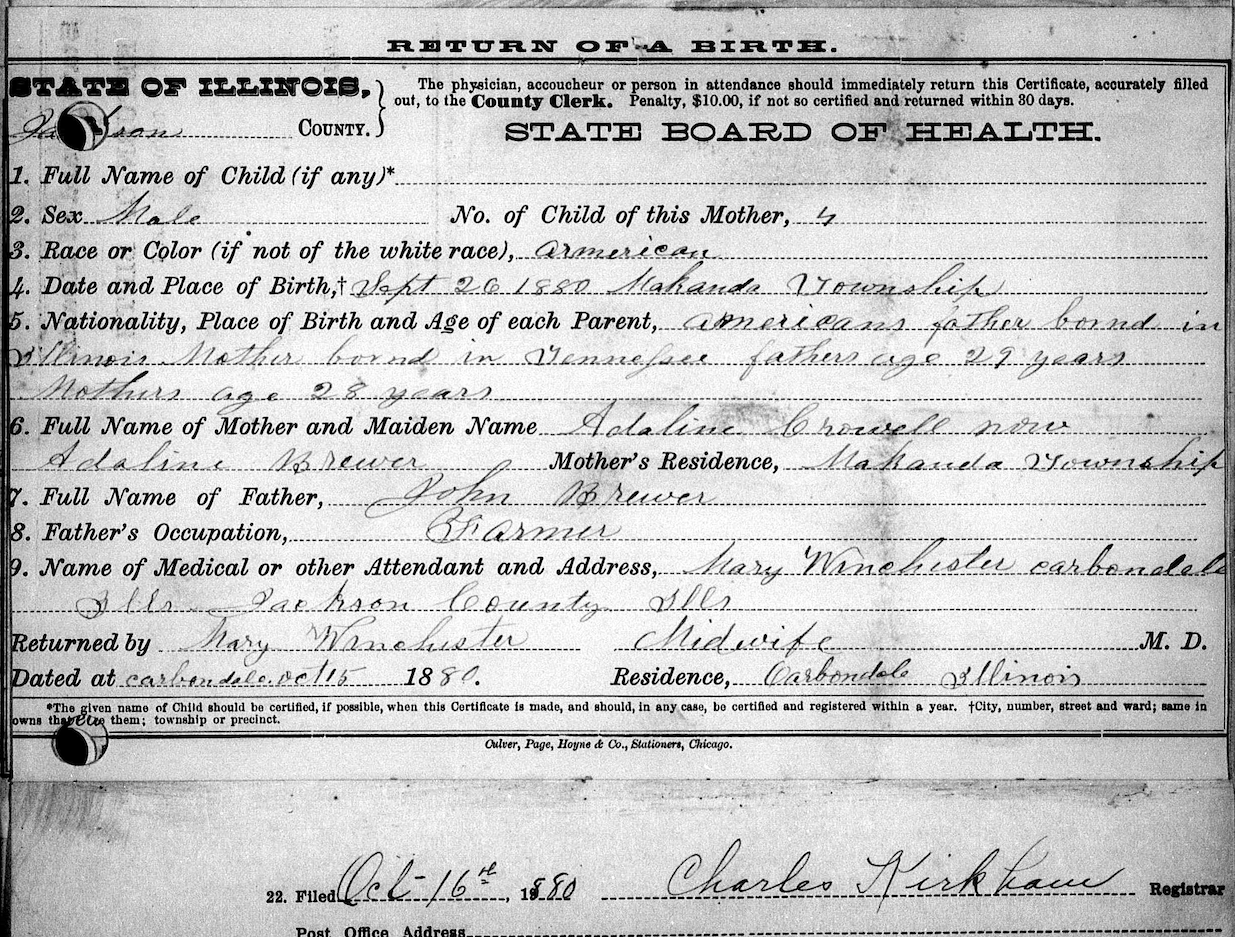 RETURN OF A BIRTH.
STATE OF ILLINOIS,
The physician, accoucheur or person in attendance should immediately return this Certificate, accurately filled
out, to the County Clerk. Penalty, $10.00, if not so certified and returned within 30 days.
Jackson COUNTY.
STATE BOARD OF HEALTH.
1. Full Name of Child (if any)*
2. Sex Male No. of Child of this Mother, 4
3. Race or Color (if not of the white race), armerican
4. Date and Place of Birth,† Sept 26 1880 Makanda Township
5. Nationality, Place of Birth and Age of each Parent, americans father bornd in
Illinois Mother bornd in Tennessee fathers age 29 years
Mothers age 28 years
6. Full Name of Mother and Maiden Name Adaline Crowell now
Adaline Brewer Mother's Residence, Makanda Township
7. Full Name of Father, John Brewer
8. Father's Occupation, Farmer
9. Name of Medical or other Attendant and Address, Mary Winchester carbondale
Ills Jackson County Ills
Returned by Mary Winchester Midwife M. D.
Dated at carbondale oct 15 1880. Residence, Carbondale Illinois
*The given name of Child should be certified, if possible, when this Certificate is made, and should, in any case, be certified and registered within a year. †City, number, street and ward; same in
owns them; township or precinct.
Culver, Page, Hoyne & Co., Stationers, Chicago.
22. Filed Oct 16th, 1880 Charles Kirkham Registrar
Post Office Address